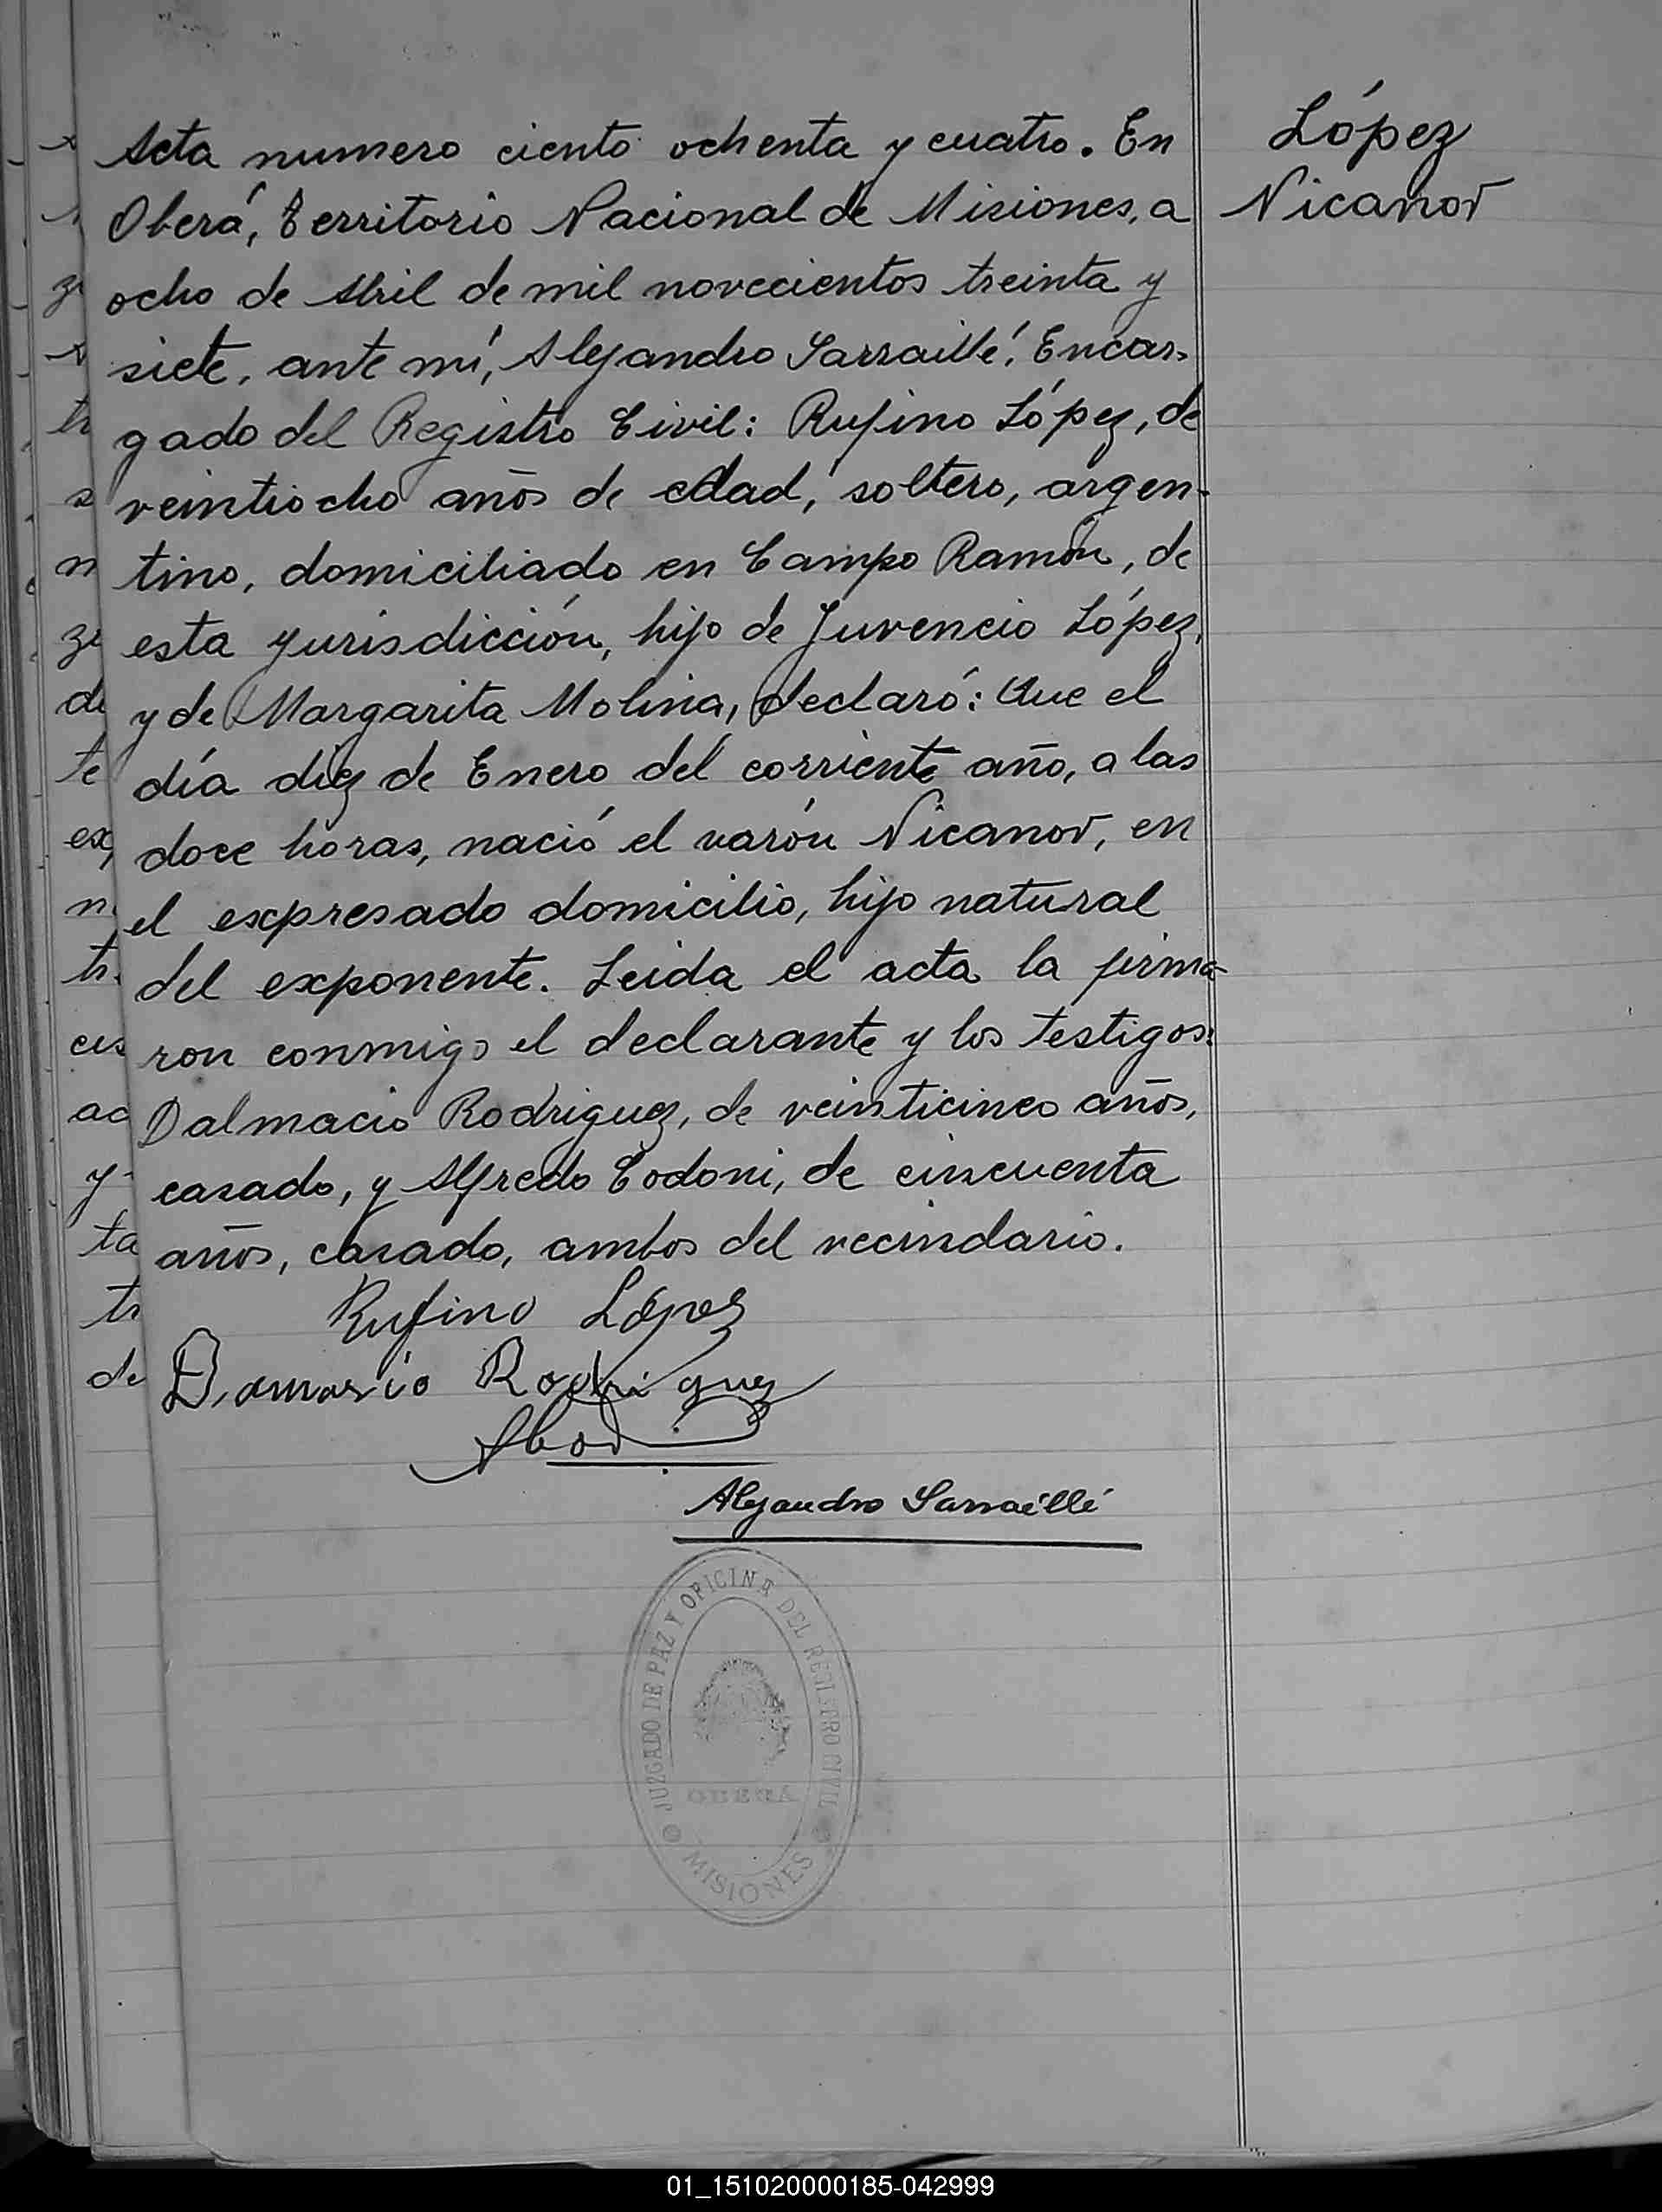 López
Nicanor
Acta numero ciento ochenta y cuatro. En
Oberá, Territorio Nacional de Misiones, a
ocho de Abril de mil novecientos treinta y
siete, ante mí, Alejandro Sarraillé, Encar-
gado del Registro Civil: Rufino López, de
veintiocho años de edad, soltero, argen-
tino, domiciliado en Campo Ramón, de
esta jurisdicción, hijo de Juvencio López,
y de Margarita Molina, declaró: Que el
día diez de Enero del corriente año, a las
doce horas, nació el varón Nicanor, en
el expresado domicilio, hijo natural
del exponente. Leida el acta la firma-
ron conmigo el declarante y los testigos:
Dalmacio Rodriguez, de veinticinco años,
casado, y Alfredo Codoni, de cincuenta
años, casado, ambos del vecindario.
Rufino López
Rodriguez
Alejandro Sarraillé
JUZGADO DE PAZ Y OFICINA DEL REGISTRO CIVIL
OBERÁ
MISIONES
01_151020000185-042999